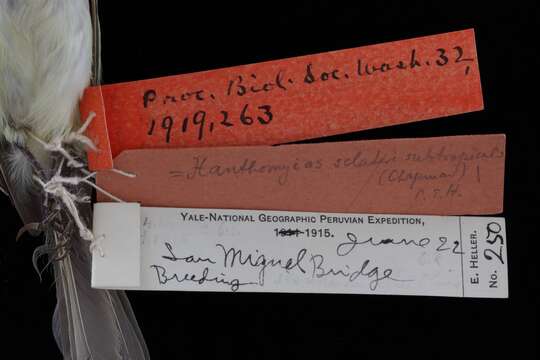 Proc. Biol. Soc. Wash. 32,
1919, 263
= Xanthomyias sclateri subtropicalis
(Chapman)!
YALE-NATIONAL GEOGRAPHIC PERUVIAN EXPEDITION,
1914 1915.
June 22
San Miguel Bridge
Breeding
E. HELLER.
No. 250